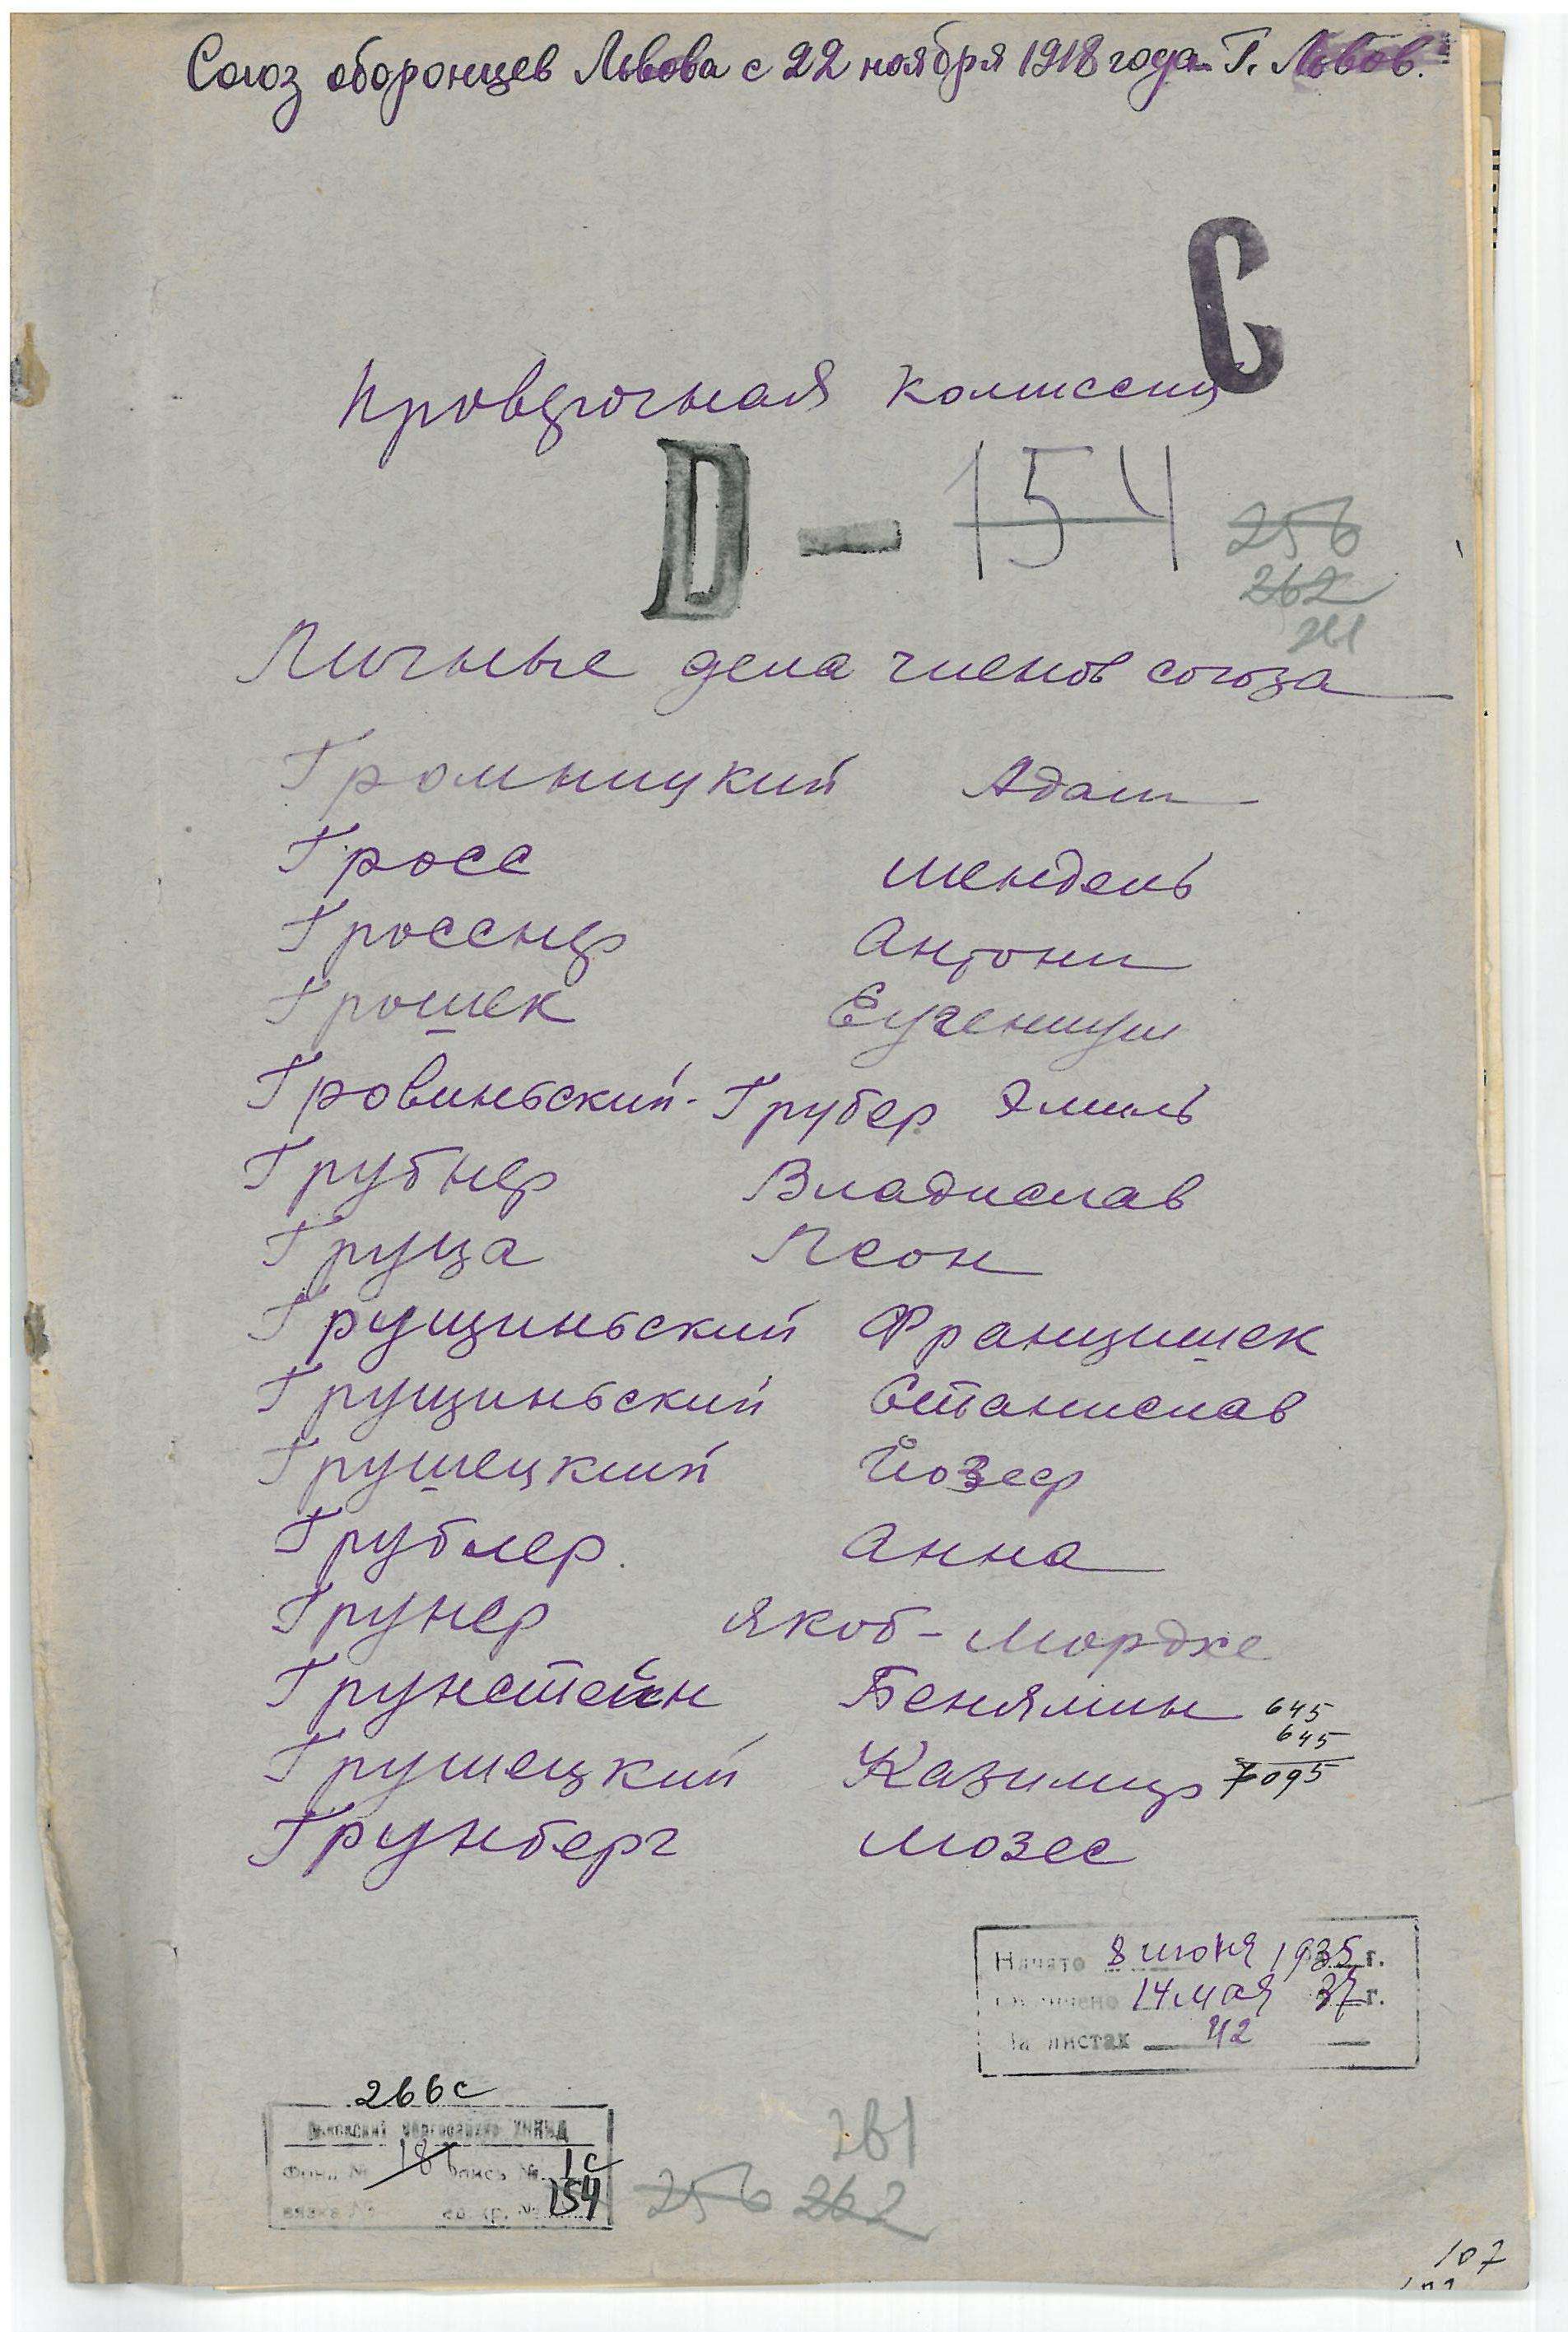 Союз оборонцев Львова с 22 ноября 1918 года Г. Львов.
С
Проверочная комиссия
D — 154
256
262
261
Личные дела членов союза
Громницкий Адам
Гросс Мендель
Гросснер Антони
Грошек Еугениуш
Гровиньский-Грубер Эмиль
Грубнер Владислав
Груца Леон
Грущиньский Францишек
Грущиньский Станислав
Грушецкий Йозеф
Грублер Анна
Грунер Якоб-Мордке
Грунштейн Бенямин 645
645
Грушецкий Казимир 7095
Грунберг Мозес
Начато 8 июня 1935 г.
Окончено 14 мая 37 г.
На листах 42
266с
Львовский облгосархив УНКВД
Фонд № 181 опись № 1с
вязка № ед. хр. № 154
256 262
261
107